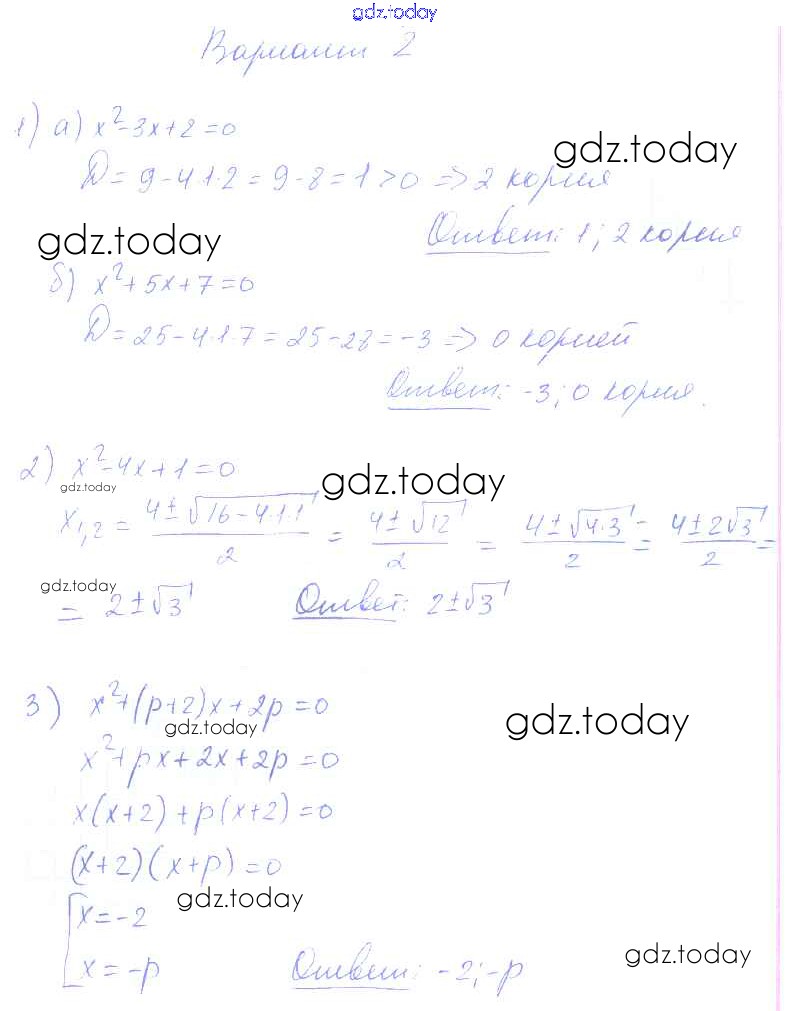 gdz.today
Вариант 2
1) а) x²-3x+2=0
gdz.today
D = 9-4·1·2 = 9-8 = 1 > 0 => 2 корня
Ответ: 1; 2 корня
gdz.today
б) x²+5x+7=0
D = 25-4·1·7 = 25-28 = -3 => 0 корней
Ответ: -3; 0 корня.
2) x²-4x+1=0
gdz.today
gdz.today
x₁,₂ = (4±√(16-4·1·1))/2 = (4±√12)/2 = (4±√(4·3))/2 = (4±2√3)/2 =
gdz.today
= 2±√3 Ответ: 2±√3
3) x²+(p+2)x+2p=0
gdz.today
gdz.today
x²+px+2x+2p=0
x(x+2)+p(x+2)=0
(x+2)(x+p)=0
[x=-2
gdz.today
x=-p Ответ: -2; -p
gdz.today